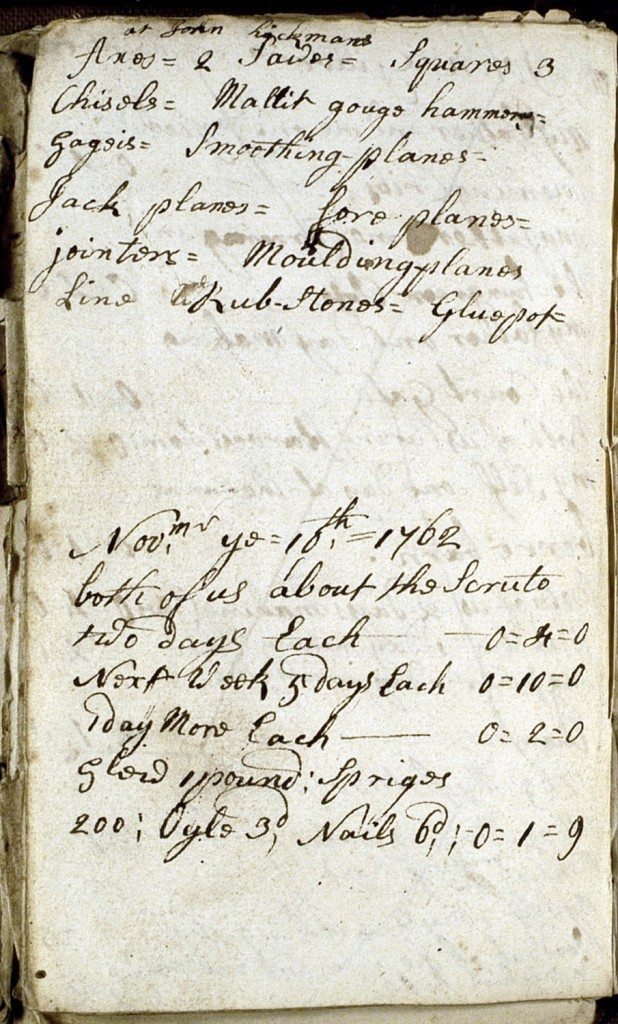 at John Hickmans
Axes = 2 Sawes = Squares 3
Chisels = Mallit gouge hammers =
gageis = Smoothing-planes =
Jack planes = fore planes =
jointers = Moulding-planes
Line Rub-Stones = Gluepot =
Nov.mr ye = 16th = 1762
both of us about the Scruto
two days Each — — 0 = 4 = 0
Next Week 5 days Each 0 = 10 = 0
1 day More Each — 0 = 2 = 0
glew 1 pound; Spriges
200; Oyle 3d, Nails 6d; - 0 = 1 = 9